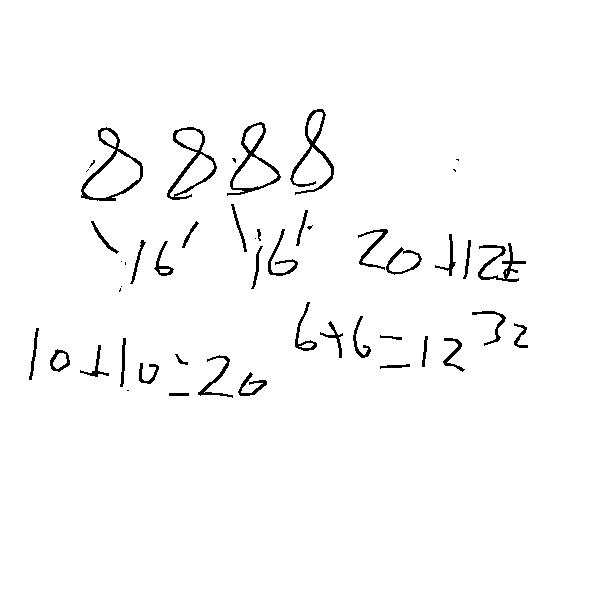 8 8 8 8
16 16 20+12=
10+10=20 6+6=12 32